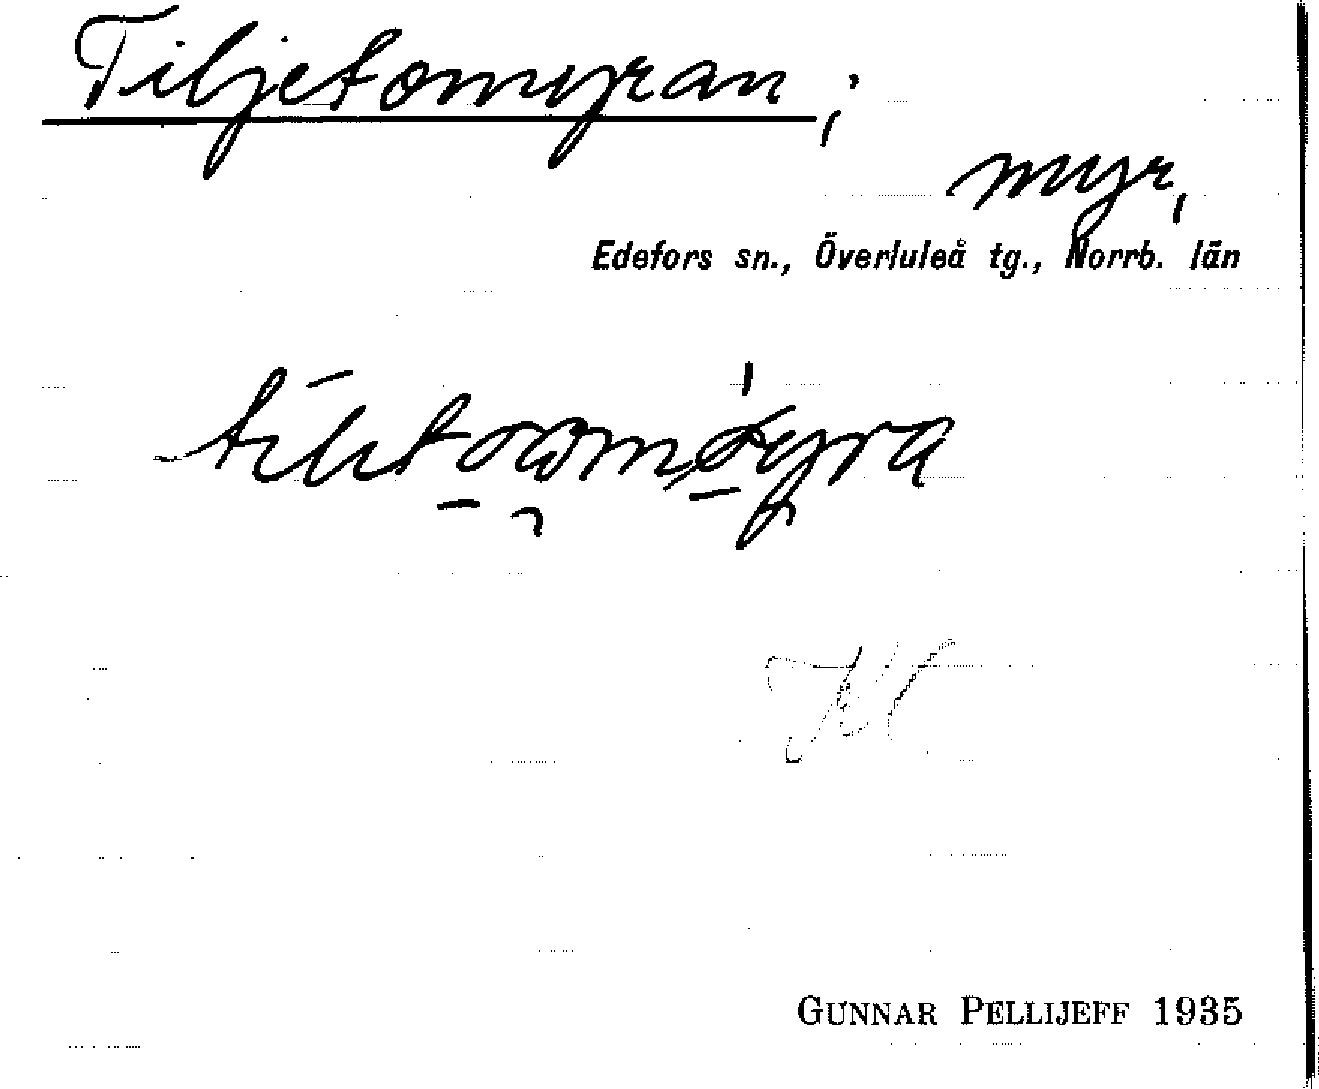 Tiljetomyran;
myr,
Edefors sn., Överluleå tg., Norrb. län
GUNNAR PELLIJEFF 1935